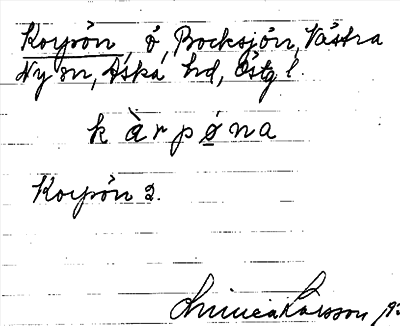 Korpön, ö, Bocksjön, Västra
Ny sn, Aska hd, Östgl.
k à r p ø n a
Korpön 2.
Larsson